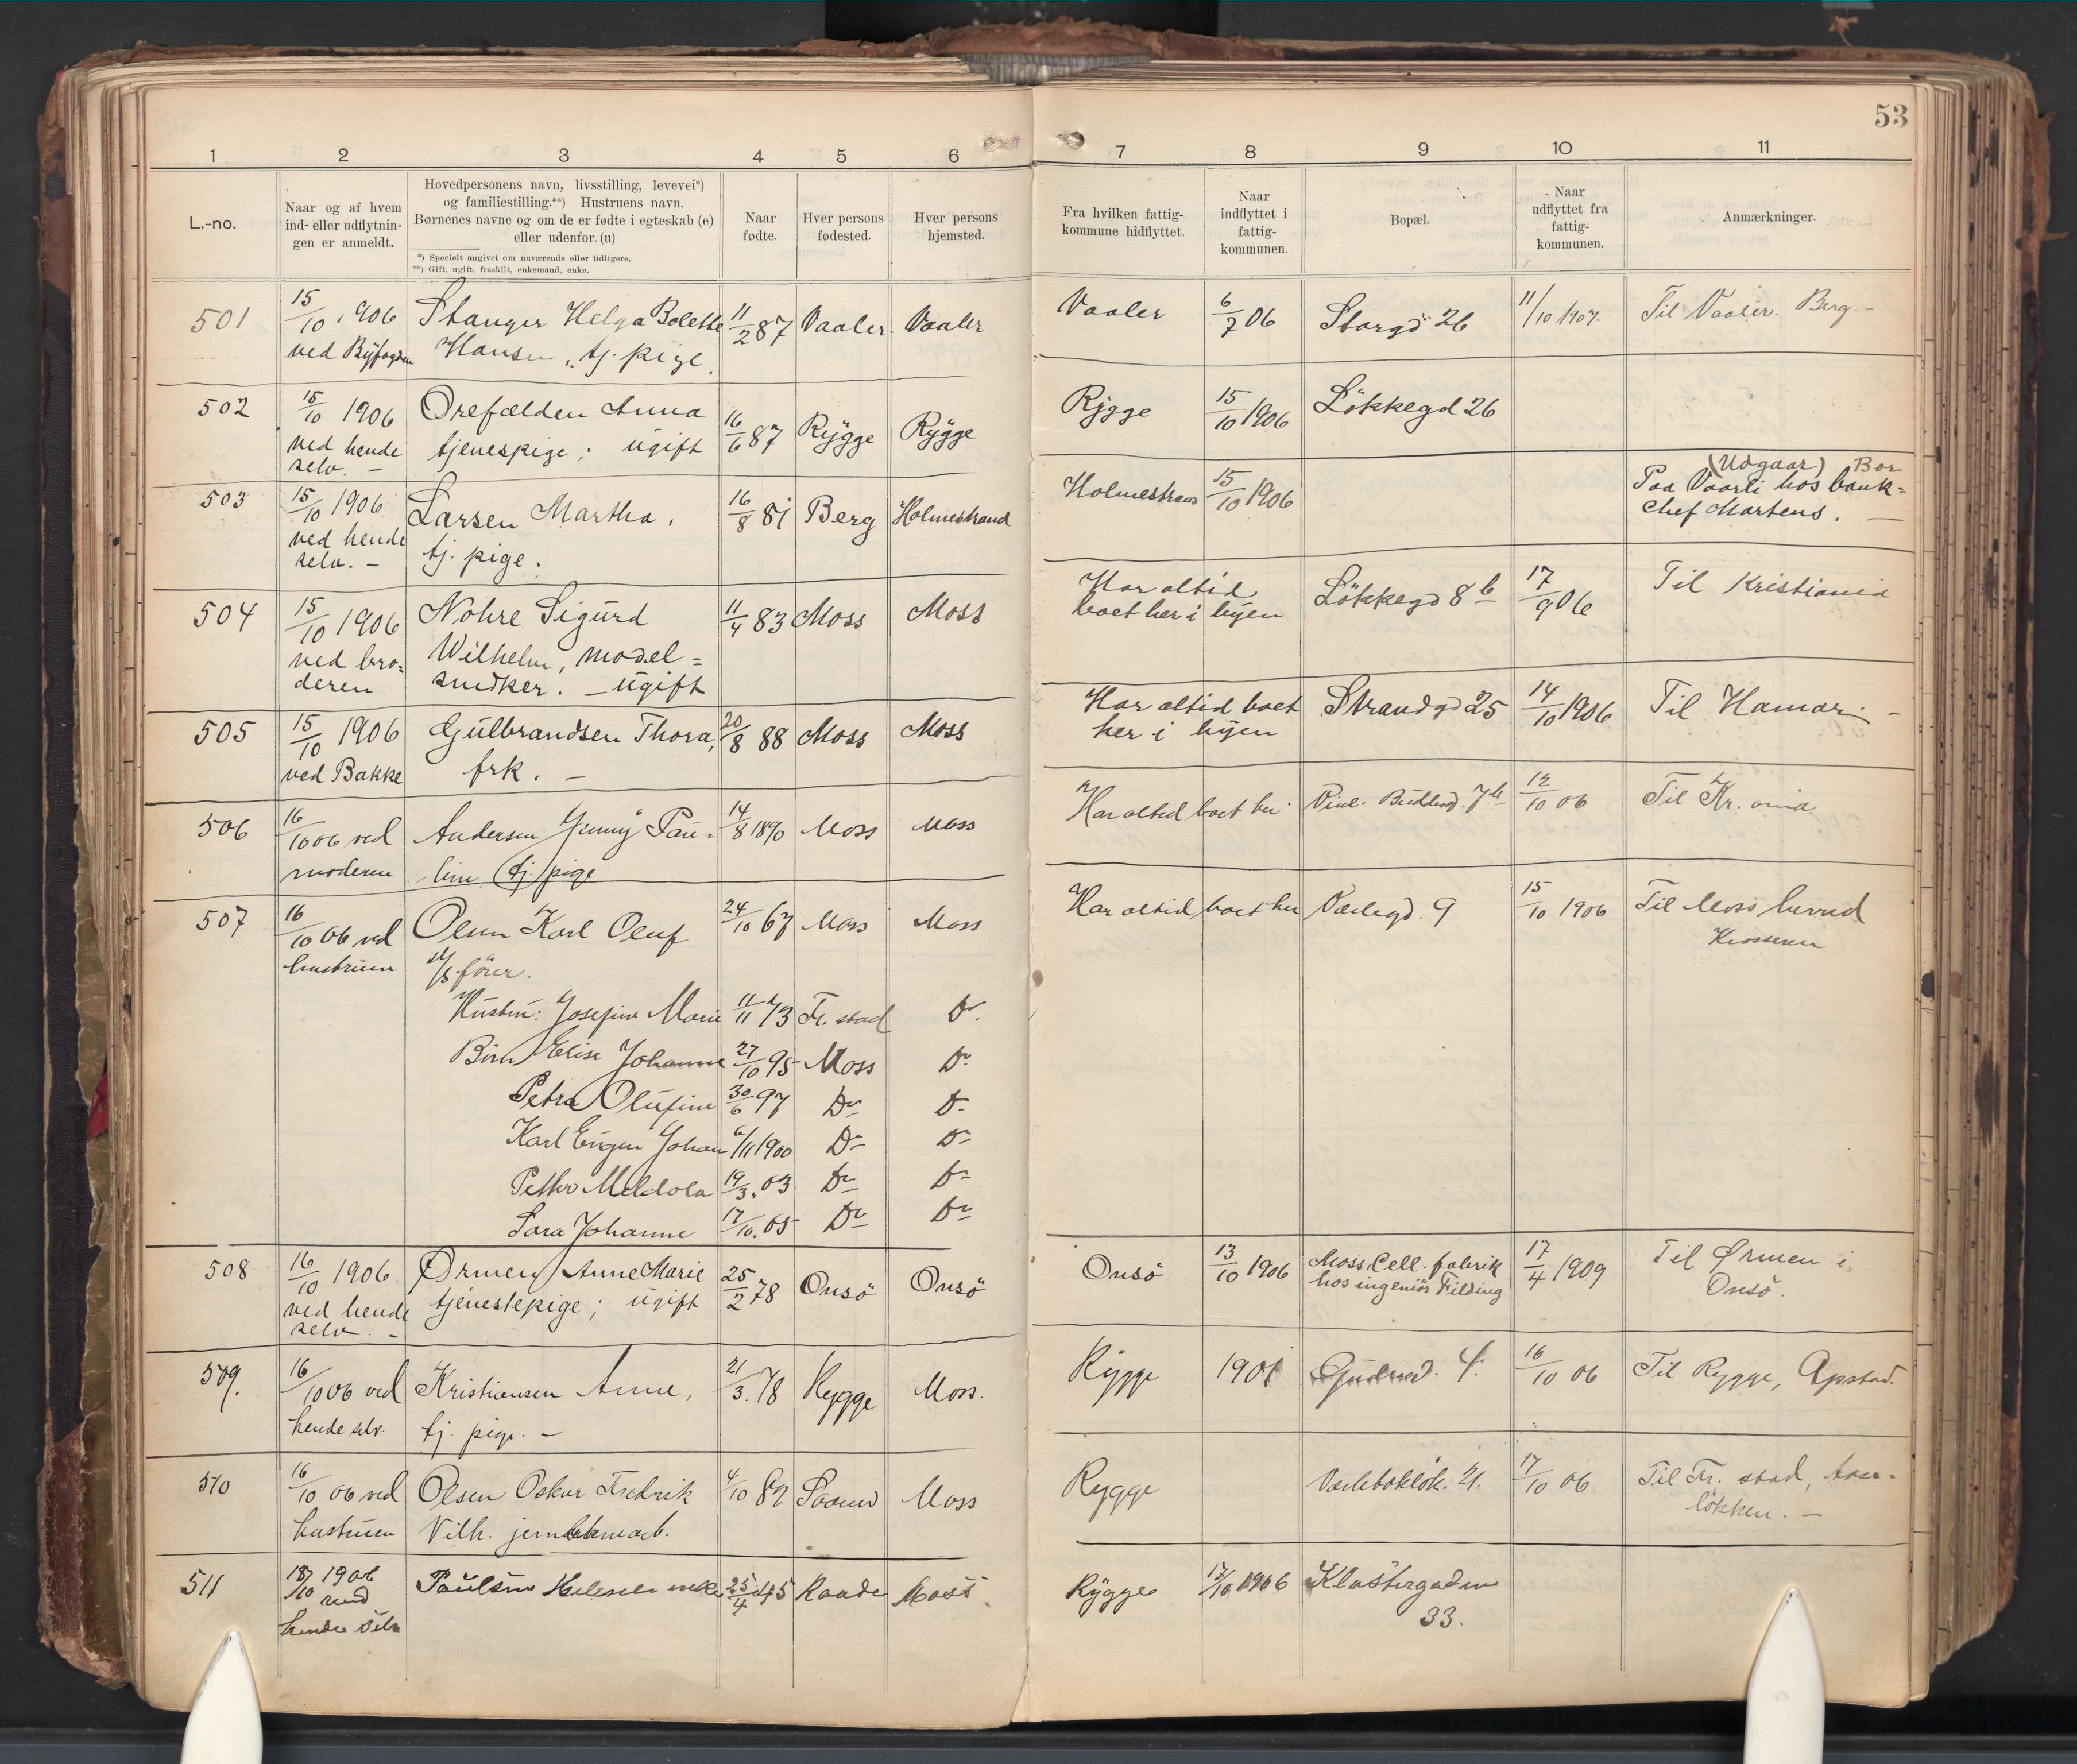 53
1 2 3 4 5 6 7 8 9 10 11
L.-no.
Naar og af hvem
ind- eller udflytnin-
gen er anmeldt.
Hovedpersonens navn, livsstilling, levevei*)
og familiestilling.**) Hustruens navn.
Børnenes navne og om de er fødte i egteskab (e)
eller udenfor. (u)
*) Specielt angivet om nuværende eller tidligere.
**) Gift, ugift, fraskilt, enkemand, enke.
Naar
fødte.
Hver persons
fødested.
Hver persons
hjemsted.
Fra hvilken fattig-
kommune hidflyttet.
Naar
indflyttet i
fattig-
kommunen.
Bopæl.
Naar
udflyttet fra
fattig-
kommunen.
Anmærkninger.
501 15/10 1906 Stanger Helga Bolette 11/2 87 Vaaler Vaaler Vaaler 6/7 06 Storgd 26 11/10 1907. Til Vaaler. Berg. -
ved Byfogden Hansen, tj. pige.
502 15/10 1906 Orefælden Anna 16/6 87 Rygge Rygge Rygge 15/10 1906 Løkkegd 26
ved hende tjenespige; ugift
selv. -
503 15/10 1906 Larsen Martha, 16/8 81 Berg Holmestrand Holmestrand 15/10 1906 (Udgaar) Bor
ved hende tj. pige. Paa Vaarli hos bank=
selv. - chef Martens. -
504 15/10 1906 Nohre Sigurd 11/4 83 Moss Moss Har altid Løkkegd 8 b 17/9 06 Til Kristiania
ved bro= Wilhelm, model= boet her i byen
deren snedker. - ugift
505 15/10 1906 Gulbrandsen Thora, 20/8 88 Moss Moss Har altid boet Strandgd 25 14/10 1906 Til Hamar. -
ved Bakke frk. - her i byen
506 16/10 06 ved Andersen Jenny Pau= 14/8 1890 Moss Moss Har altid boet her 7 b 12/10 06 Til Kr.ania
moderen line tj. pige
507 16/10 06 ved Olsen Karl Oluf 24/10 67 Moss Moss Har altid boet her Værlegd. 9 15/10 1906 Til Moss herred
hustruen d/s fører. Krosseren
Hustru: Josefine Marie 11/11 73 Fr. stad Do.
Børn Elise Johanne 27/10 95 Moss Do
Petra Olufine 30/6 97 Do Do
Karl Eugen Johan 6/11 1900 Do Do
Petter Meldola 19/3. 03 Do Do
Sara Johanne 17/10. 05 Do Do
508 16/10 1906 Ørmen Anne Marie 25/2 78 Onsö Onsö Onsö 13/10 1906 Moss Cell. fabrik 17/4 1909 Til Ørmen i
ved hende tjenestepige; ugift hos ingeniør Filding Onsö.
selv. -
509. 16/10 06 ved Kristiansen Anne, 21/3. 78 Rygge Moss. Rygge 1901 Gudesd. 4. 16/10 06 Til Rygge, Apstad.
hende selv. tj. pige. -
510 16/10 06 ved Olsen Oskar Fredrik 4/10 82 Moss Rygge 21. 17/10 06 Til Fr. stad,
hustruen Vilh. løkken. -
511 18/10 1906 Paulsen enke 25/4 45 Raade Moss. Rygge 17/10 1906 Klostergaden
ved 33.
hende selv